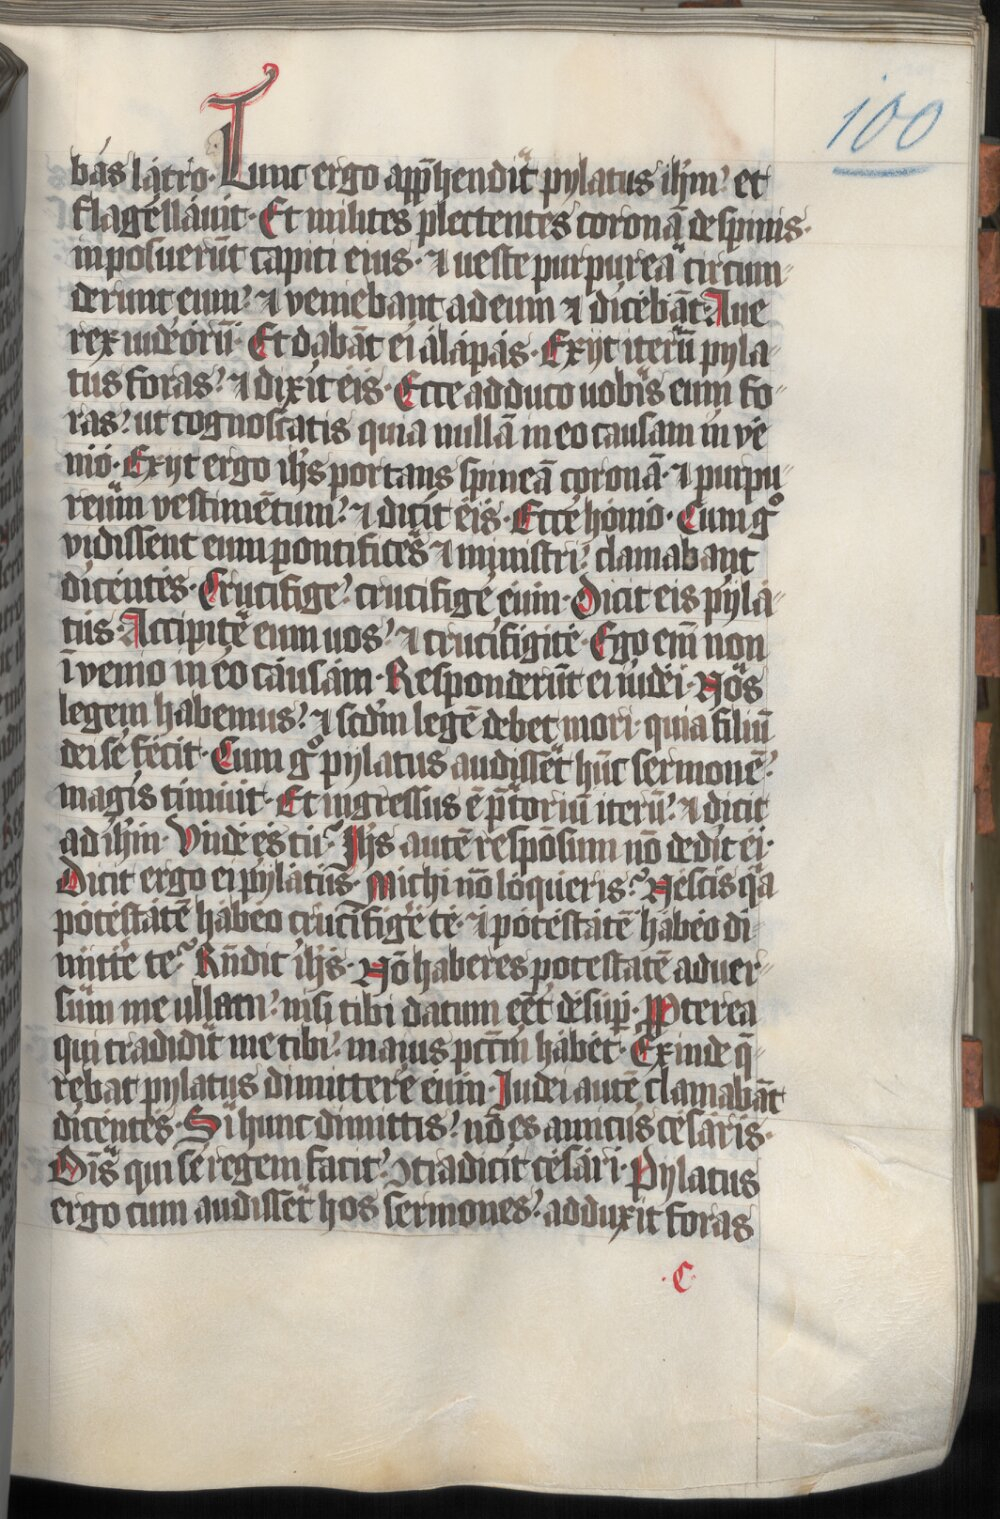 100
bas latro. Tunc ergo app̄hendit pylatus ih̄m et
flagellauit. Et milites plectentes coronā de spinis.
inposuerūt capiti eius. ⁊ ueste purpurea circum-
derunt eum. ⁊ veniebant ad eum ⁊ dicebāt. Aue
rex iudeorū. Et dabāt ei alapas. Exyt iterū pyla-
tus foras. ⁊ dixit eis. Ecce adduco uobis eum fo-
ras. ut cognoscatis quia nullā in eo causam in ve
nio. Exyt ergo ih̄s portans spineā coronā. ⁊ purpu-
reum vestimētum. ⁊ dicit eis. Ecce homo. Cum gͦ
vidissent eum pontifices ⁊ ministri. clamabant
dicentes. Crucifige. crucifige eum. Dicit eis pyla-
tus. Accipite eum uos. ⁊ crucifigite. Ego em̄ non
īvenio in eo causam. Responderūt ei iudei. Nos
legem habemus. ⁊ scd̄m legē debet mori. quia filiū
dei se fecit. Cum gͦ pylatus audisset hūc sermonē.
magis timuit. Et ingressus ē p̄toriū iterū. ⁊ dicit
ad ih̄m. Vnde es tu? Ih̄s autē respōsum nō dedit ei.
Dicit ergo ei pylatus. Michi nō loqueris? Nescis qa
potestatē habeo crucifige te. ⁊ potestatē habeo di-
mitte te? Rn̄dit ih̄s. Nō haberes potestatē aduer-
sum me ullam. nisi tibi datum eet̄ desup̄. Ꝓpterea
qui tradidit me tibi. maius pctm̄ habet. Exinde q̄-
rebat pylatus dimittere eum. Iudei autē clamabāt
dicentes. Si hunc dimittis. nō es amicus cesaris.
Oīs qui se regem facit. ꝯtradicit cesari. Pylatus
ergo cum audisset hos sermones. adduxit foras
.C.